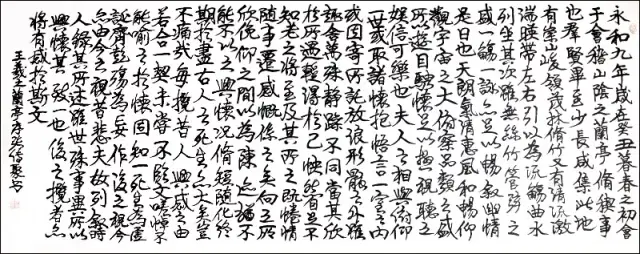 永和九年歲在癸丑暮春之初會
于會稽山陰之蘭亭脩稧事
也群賢畢至少長咸集此地
有崇山峻領茂林脩竹又有清流激
湍暎帶左右引以為流觴曲水
列坐其次雖無絲竹管弦之
盛一觴一詠亦足以暢敘幽情
是日也天朗氣清惠風和暢仰
觀宇宙之大俯察品類之盛
所以遊目騁懷足以極視聽之
娛信可樂也夫人之相與俯仰
一世或取諸懷抱悟言一室之內
或因寄所託放浪形骸之外雖
趣舍萬殊靜躁不同當其欣
於所遇暫得於己怏然自足不
知老之將至及其所之既惓情
隨事遷感慨係之矣向之所
欣俛仰之間以為陳迹猶不
能不以之興懷況脩短隨化終
期於盡古人云死生亦大矣豈
不痛哉每攬昔人興感之由
若合一契未嘗不臨文嗟悼不
能喻之於懷固知一死生為虛
誕齊彭殤為妄作後之視今
亦由今之視昔悲夫故列敘時
人錄其所述雖世殊事異所以
興懷其致一也後之攬者亦
將有感於斯文
王羲之蘭亭序